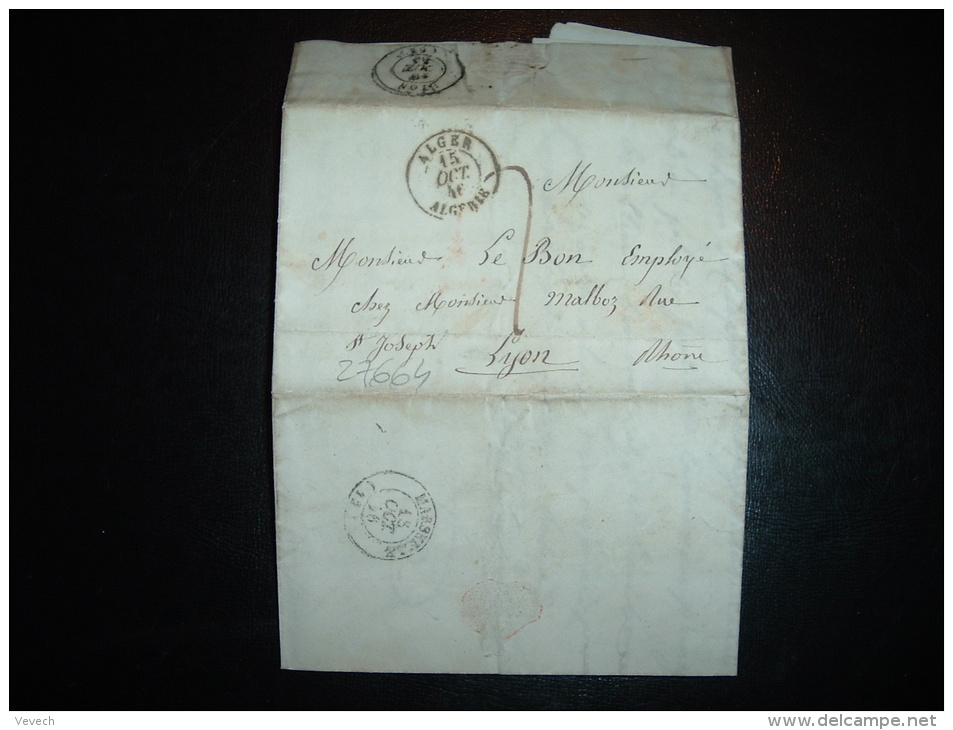 ALGER
15
OCT.
46
ALGERIE
Monsieur
Monsieur Le Bon Employé
chez Monsieur Malboz Rue
St Joseph Lyon Rhône
27664
MARSEILLE
18
OCT.
46
LYON
Vevech
www.delcampe.net